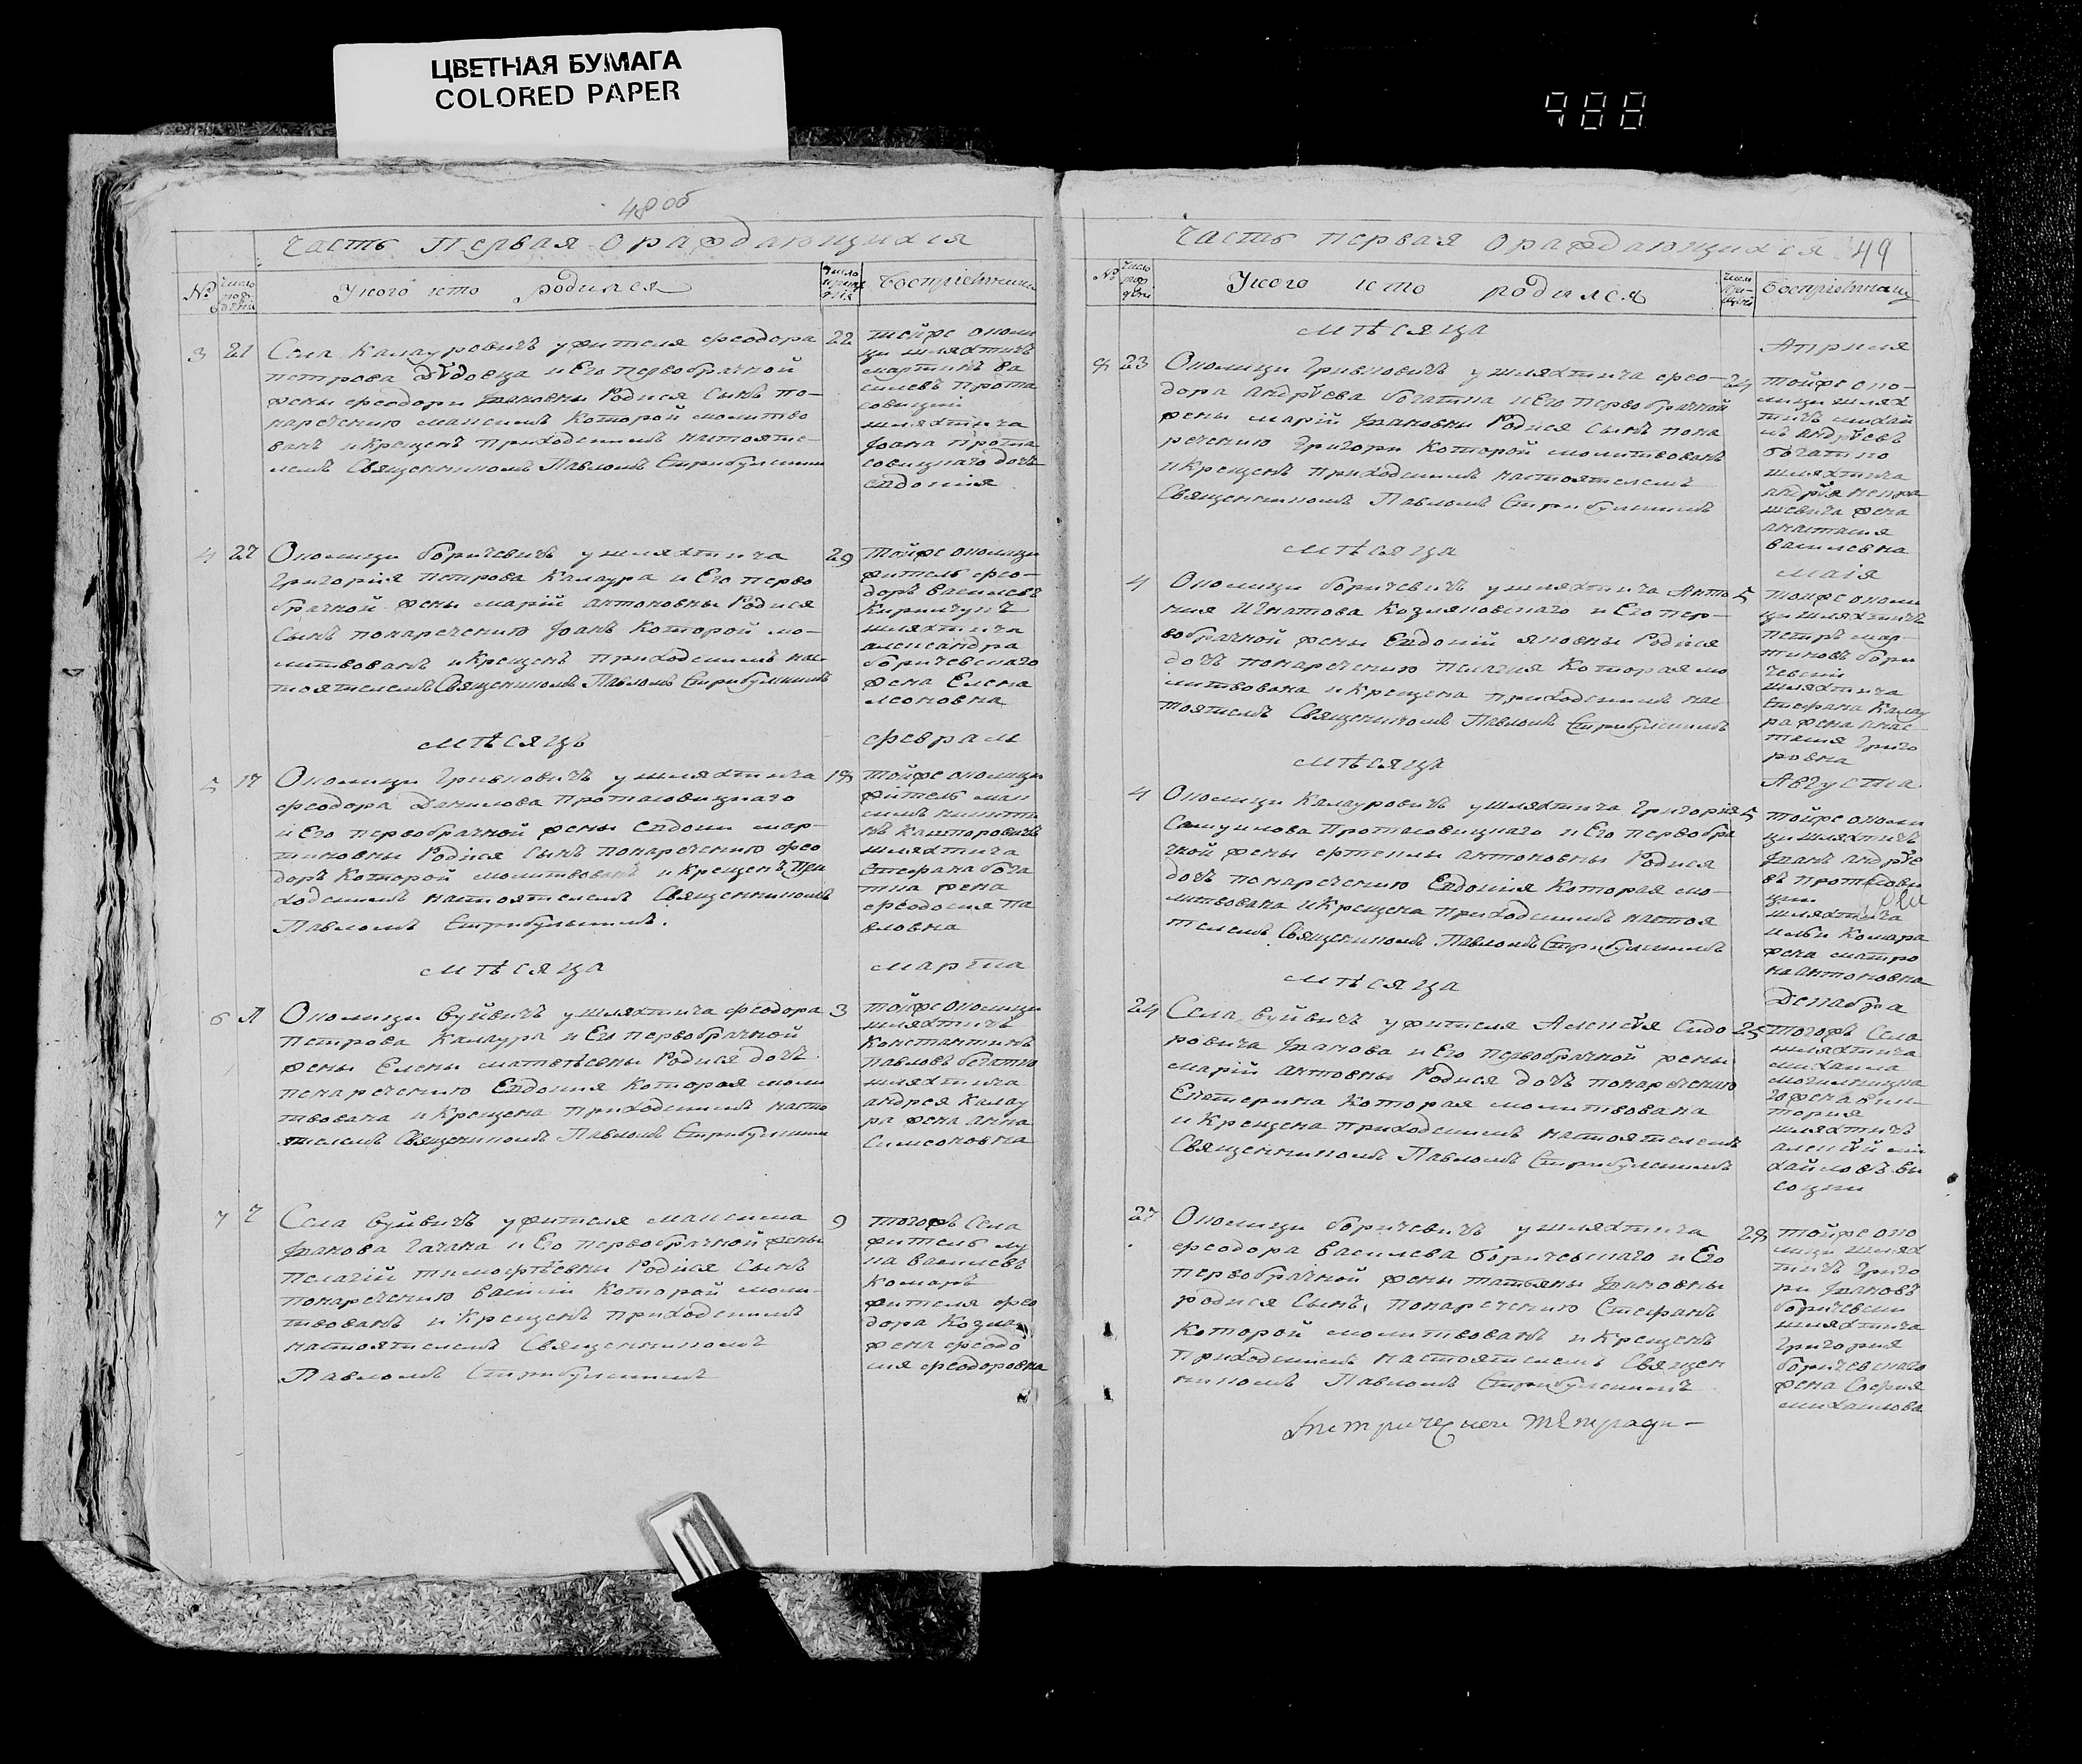 ЦВЕТНАЯ БУМАГА
COLORED PAPER
988
48 об
Часть Первая о раждающихся
№ Число рождения У кого кто родился Число крещения Воспрiемники
3 21 Села Калауровичъ у жителя Феодора 22
Петрова и Его первобрачной
жены Феодоры Iвановны Родися Сынъ по-
наречению Максимъ Которой молитво
ванъ и Крещенъ Приходскимъ настояте-
лемъ Священникомъ Павломъ
тойже околи
цы шляхтичъ
Мартинъ Ва
силевъ Прота
совицкiй
шляхтича
Iоана Прота
совицкаго дочь
Евдокия
4 27 Околицы Боричевичъ у шляхтича 29
Григория Петрова Калаура и Его перво
брачной жены Марiй Антоновны Родися
Сынъ понаречению Iоанъ Которой мо-
литвованъ и Крещенъ Приходскимъ нас-
тоятелемъ Священикомъ Павломъ
тойже околицы
житель Фео-
доръ Василевъ
шляхтича
Александра
Боричевскаго
жена Елена
Леоновна
Мѣсяцъ Февраль
5 17 Околицы Гривковичъ у шляхтича 18
Феодора Данилова Протасовицкаго
и Его первобрачной жены Евдокии Мар-
тиновны Родися Сынъ понаречению Фео
доръ Которой молитвованъ и Крещенъ При
ходскимъ настоятелемъ Священникомъ
Павломъ
тойже околицы
житель Мак
симъ
шляхтича
Стефана Бога
тка жена
Феодосия Па
вловна
Мѣсяца Марта
6 Околицы Вуйвичъ у шляхтича Феодора 3
Петрова Калаура и Его первобрачной
жены Елены Матвѣевны Родися дочь
понаречению Евдокия Которая моли
твована и Крещена Приходскимъ насто
телемъ Священикомъ Павломъ
тойже околицы
шляхтичъ
Константинъ
Павловъ Богатко
шляхтича
Андрея Калау
ра жена Анна
Симеоновна
7 Села Вуйвичъ у жителя Максима 9
Iванова и Его первобрачной жены
Пелагiй Тимофѣевны Родися Сынъ
понаречению Василiй Которой моли-
твованъ и Крещенъ Приходскимъ
настоятелемъ Священникомъ
Павломъ
тогожъ Села
житель Лу
ка Василевъ
Комаръ
жителя Фео
дора
жена Феодо
сия Феодоровна
Часть первая о раждающихся 49
№ Число рождения У кого кто родился Число Воспрiемницы
Мѣсяца Априля
8 23 Околицы Гривковичъ у шляхтича Фео- 24
дора Андрѣева Богатка и Его первобрачной
жены Марiй Iвановны Родися Сынъ пона
речению Григори Которой молитвованъ
и Крещенъ Приходскимъ настоятелемъ
Священникомъ Павломъ
тойже око-
лицы шлях
тичъ Михай
лъ Андрѣевъ
Богатко
шляхтича
Андрѣя
жена
Анастасия
Василевна
Мѣсяца Маiя
4 Околицы Боричевичъ у шляхтича Анто 5
ния Игнатова Козляковскаго и Его пер-
вобрачной жены Евдокiй Родися
дочь понаречению Пелагия Которая мо
литвована и Крещена Приходскимъ нас
тоятелмъ Священичомъ Павломъ
тойже околи
цы шляхтичъ
Петръ Мар-
тиновъ Бори
чевскiй
шляхтича
Стефана Калау
ра жена Анас-
тасия Григо
ровна
Мѣсяца Августа
4 Околицы Калауровичъ у шляхтича Григория 5
Самуилова Протасовицкаго и Его первобра
чной жены Антоновны Родися
дочь понаречению Евдокия Которая мо-
литвована и Крещена Приходскимъ настоя
телемъ Священикомъ Павломъ
тойже околи
цы шляхтичъ
Iванъ Андрѣе
въ Протасови
цки
шляхтича
Ильи Комара
жена Матро
на Антоновна
Мѣсяца Декабра
24 Села Вуйвичъ у жителя Алексѣя Сидо 25
ровича Iванова и Его первобрачной жены
Марiй Родися дочь понаречению
Екатерина Которая молитвована
и Крещена Приходскимъ настоятелемъ
Священникомъ Павломъ
тогожъ Села
шляхтича
Михаила
го жена Вик-
тория
шляхтичъ
Алексѣй Ми
хайловъ Вы
соцки
27 Околицы Боричевичъ у шляхтича 28
Феодора Василева Боричевскаго и Его
первобрачной жены Татьяны Iвановны
родися Сынъ понаречению Стефанъ
Которой молитвованъ и Крещенъ
Приходскимъ настоятелемъ Священ
никомъ Павломъ
тойже око
лицы шлях
тичъ Григо
ри Iвановъ
Боричевски
шляхтича
Григория
Боричевскаго
жена София
Михаилова